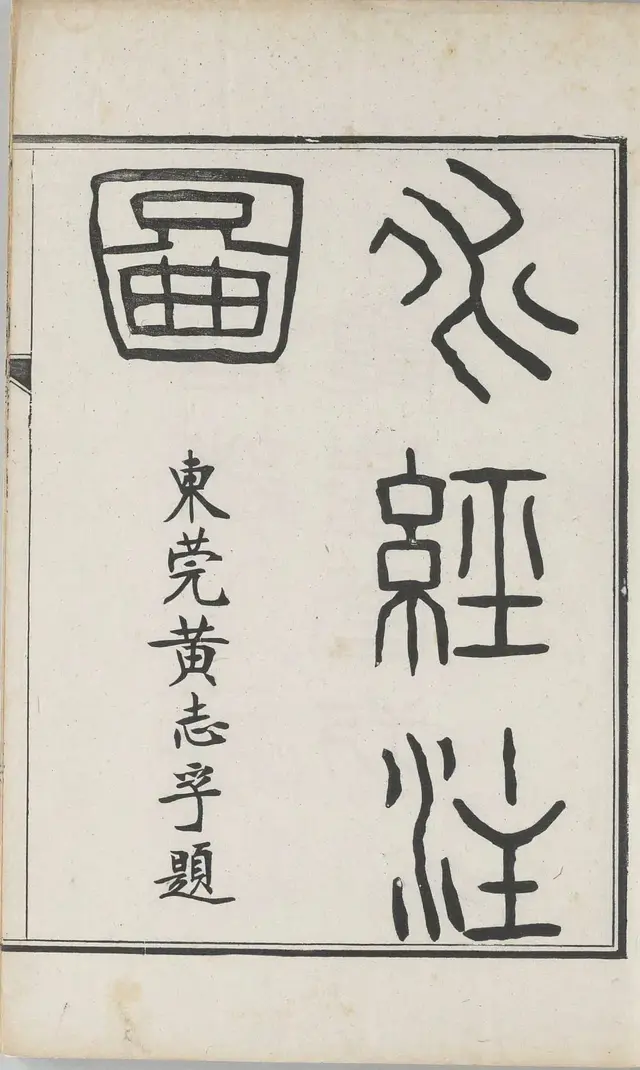 水經注
圖
東莞黃志孚題